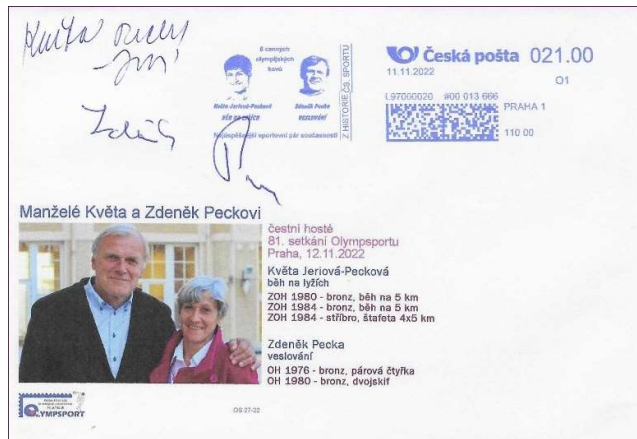 Květa
6 cenných
olympijských
kovů
Květa Jeriová-Pecková
Zdeněk Pecka
BĚH NA LYŽÍCH
VESLOVÁNÍ
Nejúspěšnější sportovní pár současnosti
Z HISTORIE ČS. SPORTU
Česká pošta 021.00
11.11.2022
O1
L97060020 #00 013 666
PRAHA 1
110 00
Zdeněk
Manželé Květa a Zdeněk Peckovi
čestní hosté
81. setkání Olympsportu
Praha, 12.11.2022
Květa Jeriová-Pecková
běh na lyžích
ZOH 1980 - bronz, běh na 5 km
ZOH 1984 - bronz, běh na 5 km
ZOH 1984 - stříbro, štafeta 4x5 km
Zdeněk Pecka
veslování
OH 1976 - bronz, párová čtyřka
OH 1980 - bronz, dvojskif
OLYMPSPORT
OS 27-22